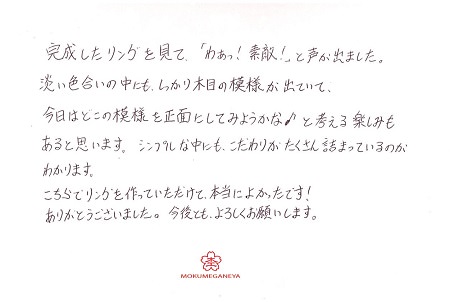 完成したリングを見て、「わぁっ！素敵！」と声が出ました。
淡い色合いの中にも、しっかり木目の模様が出ていて、
今日はどこの模様を正面にしてみようかな♪と考える楽しみも
あると思います。シンプルな中にも、こだわりがたくさん詰まっているのが
わかります。
こちらでリングを作っていただけて、本当によかったです！
ありがとうございました。今後とも、よろしくお願いします。
MOKUMEGANEYA